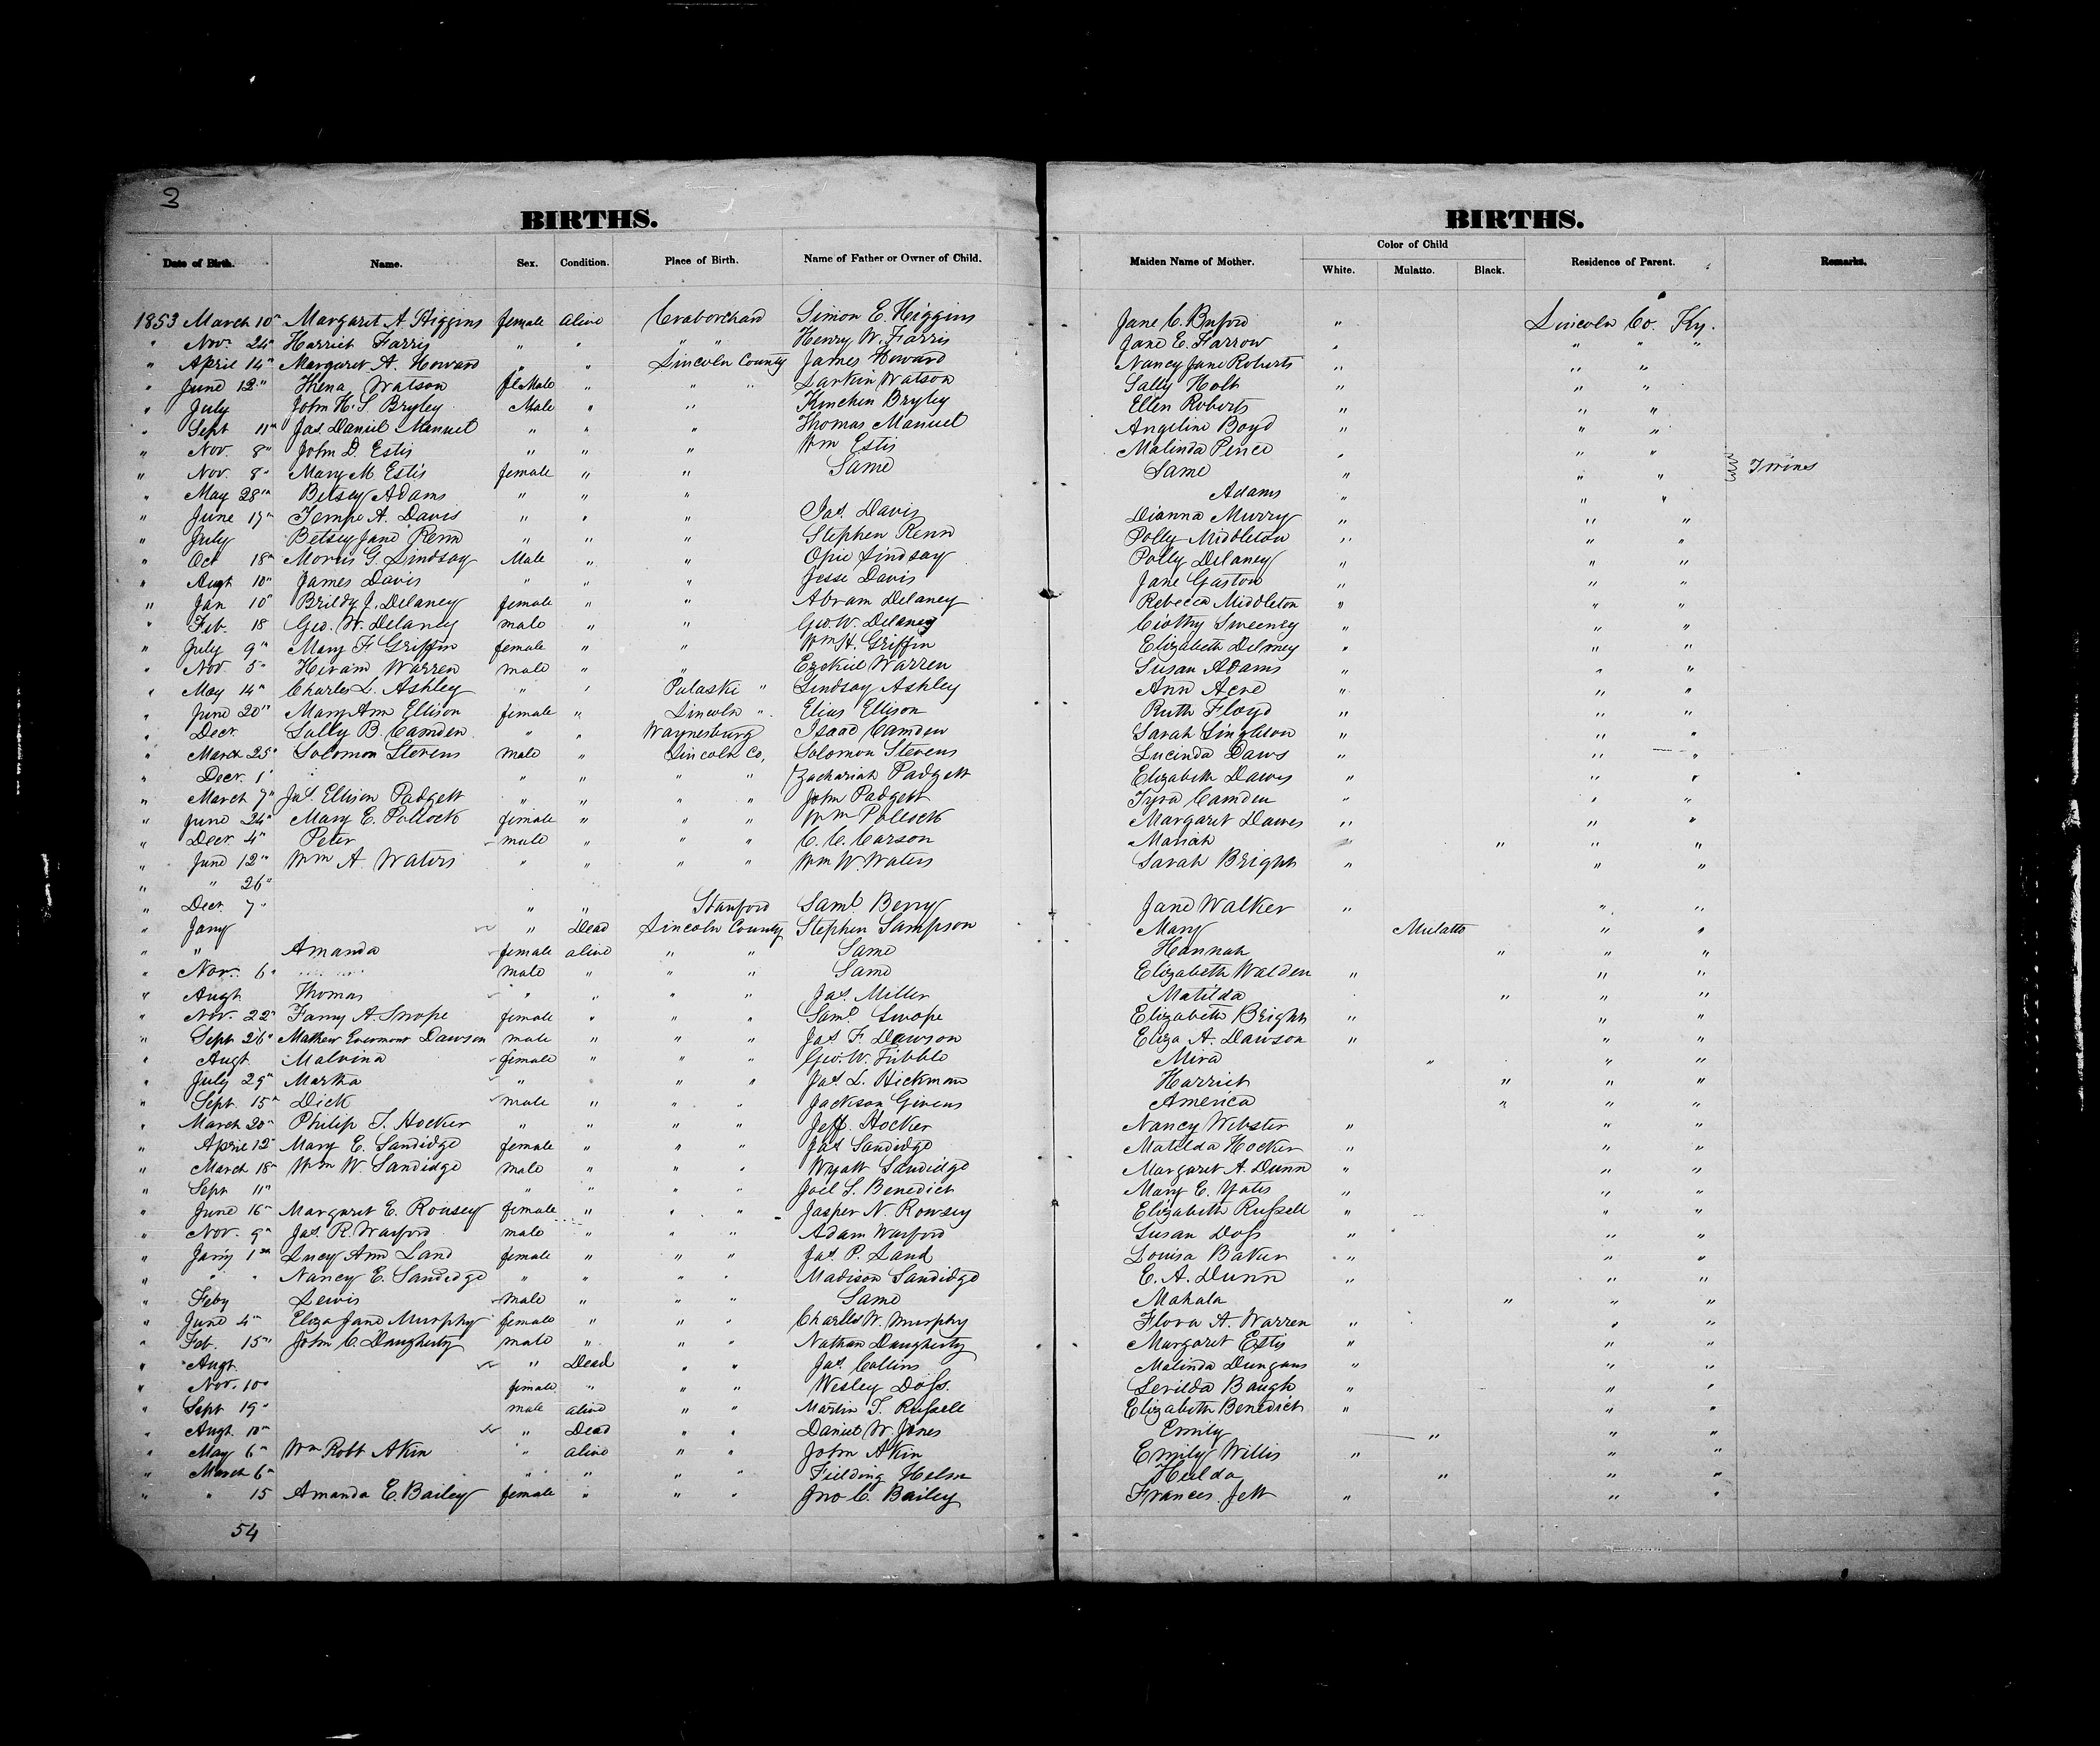 3
BIRTHS. BIRTHS.
Date of Birth. Name. Sex. Condition. Place of Birth. Name of Father or Owner of Child. Maiden Name of Mother. Color of Child White. Mulatto. Black. Residence of Parent. Remarks.
1853 March 10" Margaret A. Higgins female alive Craborchard Simon E. Higgins Jane C. Buford " Lincoln Co. Ky.
" Nov. 24" Harriet Farris " " " " Henry W. Farris Jane E. Farrow " " " "
" April 14" Margaret A. Howard " " Lincoln County James Howard Nancy Jane Roberts " " "
" June 12" Watson feMale " " " Larkin Watson Sally Holt " " "
" July John H. S. Bryley Male " " Kinchen Bryley Ellen Roberts " " "
" Sept 11" Jas Daniel Manuel " " " Thomas Manuel Angeline Boyd " " "
" Nov. 8" John D. Estis " " " Wm Estis Malinda Pence " " "
" Nov. 8" Mary M. Estis female " " Same Same " " " Twins
" May 28th Betsey Adams " " " Adams " " "
" June 17" Tempe A. Davis " " " Jas. Davis Dianna Murry " " "
" July Betsey Jane Renn " " " Stephen Renn Polly Middleton " " "
" Oct 18" Morris G. Lindsay Male " " Opie Lindsay Polly Delaney " " "
" Augt 10" James Davis " " " Jesse Davis Jane Gaston " " "
" Jan 10" J. Delaney female " " Abram Delaney Rebecca Middleton " " "
" Feb. 18 Geo. W. Delaney male " " Geo. W. Delaney Sweeney " " "
" July 9" Mary F Griffin female " " Wm H. Griffin Elizabeth Delaney " " "
" Nov. 5" Hiram Warren male " " Ezekiel Warren Susan Adams " " "
" May 14" Charles L. Ashley " " Pulaski " Lindsay Ashley Ann Acre " " "
" June 20" Mary Ann Ellison female " Lincoln " Elias Ellison Ruth Floyd " " "
" Decr. Sally B. Camden " " Waynesburg Isaac Camden Sarah Singleton " " "
" March 25" Solomon Stevens male " Lincoln Co. Solomon Stevens Lucinda Daws " " "
" Decr. 1" " " " " Zachariah Padgett Elizabeth Dawes " " "
" March 7" Jas. Ellison Padgett " " " " John Padgett Camden " " "
" June 24" Mary E. Pollock female " " " Wm Pollock Margaret Dawes " " "
" Decr. 4" Peter male " " " C. C. Carson Mariah " " "
" June 12" Wm A. Waters " " " " Wm W. Waters Sarah Bright " " "
" " 26"
" Decr. 7" " " Stanford Saml. Berry Jane Walker " " "
" Jany " Dead Lincoln County Stephen Sampson Mary Mulatto " "
" " Amanda female alive " " Same Hannah " " "
" Nov. 6" male " " " Same Elizabeth Walden " " "
" Augt Thomas " " " " Jas. Miller Matilda " " "
" Nov. 22" Fanny A. Swope female " " " Saml. Swope Elizabeth Bright " " "
" Sept 26" Mathew Dawson male " " " Jas F Dawson Eliza A. Dawson " " "
" Augt. Malvina female " " " Geo. W. Tribble Mira " " "
" July 29" Martha " " " " Jas. L. Hickman Harriet " " "
" Sept. 15" Dick male " " " Jackson Givens America " " "
" March 20" Philip T. Hocker " " " " Jeff. Hocker Nancy Webster " " "
" April 12" Mary E. Sandidge female " " " Jas Sandidge Matilda Hocker " " "
" March 18" Wm W. Sandidge male " " " Wyatt Sandidge Margaret A. Dunn " " "
" Sept 11" " " " " Joel S. Benedict Mary E. Yates " " "
" June 16" Margaret E. Rousey female " " " Jasper N. Rousey Elizabeth Russell " " "
" Nov. 9" Jas. R. Warford male " " " Adam Warford Susan Doss " " "
" Jany 1st Lucy Ann Land female " " " Jas P. Land Louisa Baker " " "
" " " Nancy E. Sandidge " " " " Madison Sandidge E. A. Dunn " " "
" Feby Lewis male " " " Same Mahala " " "
" June 4" Eliza Jane Murphy female " " " Charles W. Murphy Flora A. Warren " " "
" Feb. 15" John C. Daugherty male " " " Nathan Daugherty Margaret Estis " " "
" Augt. " Dead " " Jas. Collins Malinda Dungans " " "
" Nov. 10" female " " " Wesley Doss. Serilda Baugh " " "
" Sept 19" male alive " " Martin T. Russell Elizabeth Benedict " " "
" Augt. 10" " Dead " " Daniel W. Jones Emily " " "
" May 6" Wm Robt Akin " alive " " John Akin Emily Willis " " "
" March 6" " " " " Fielding Helm Hulda " " "
" " 15 Amanda E. Bailey female " " " Jno C. Bailey Frances Jett " " "
54